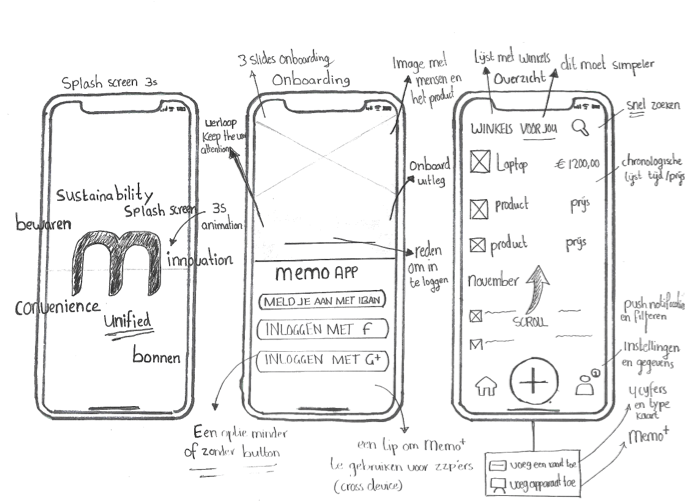 Splash screen 3s
Sustainability
Splash screen
3s
animation
bewaren
m
innovation
convenience
Unified
bonnen
3 slides onboarding
Onboarding
Image met
mensen en
het product
verloop
Keep the user
attention
Onboard
uitleg
reden
om in
te loggen
memo APP
MELD JE AAN MET IBAN
INLOGGEN MET F
INLOGGEN MET G+
Een optie minder
of zonder button
een tip om memo+
te gebruiken voor zzp'ers
(cross device)
lijst met winkels
Overzicht
dit moet simpeler
snel zoeken
WINKELS VOOR JOU
Laptop € 1200,00
chronologische
lijst tijd/prijs
product prijs
product prijs
november
SCROLL
push notificatie
en filteren
instellingen
en gegevens
+
4 cyfers
en type
kaart
memo+
voeg een kaart toe
voeg apparaat toe